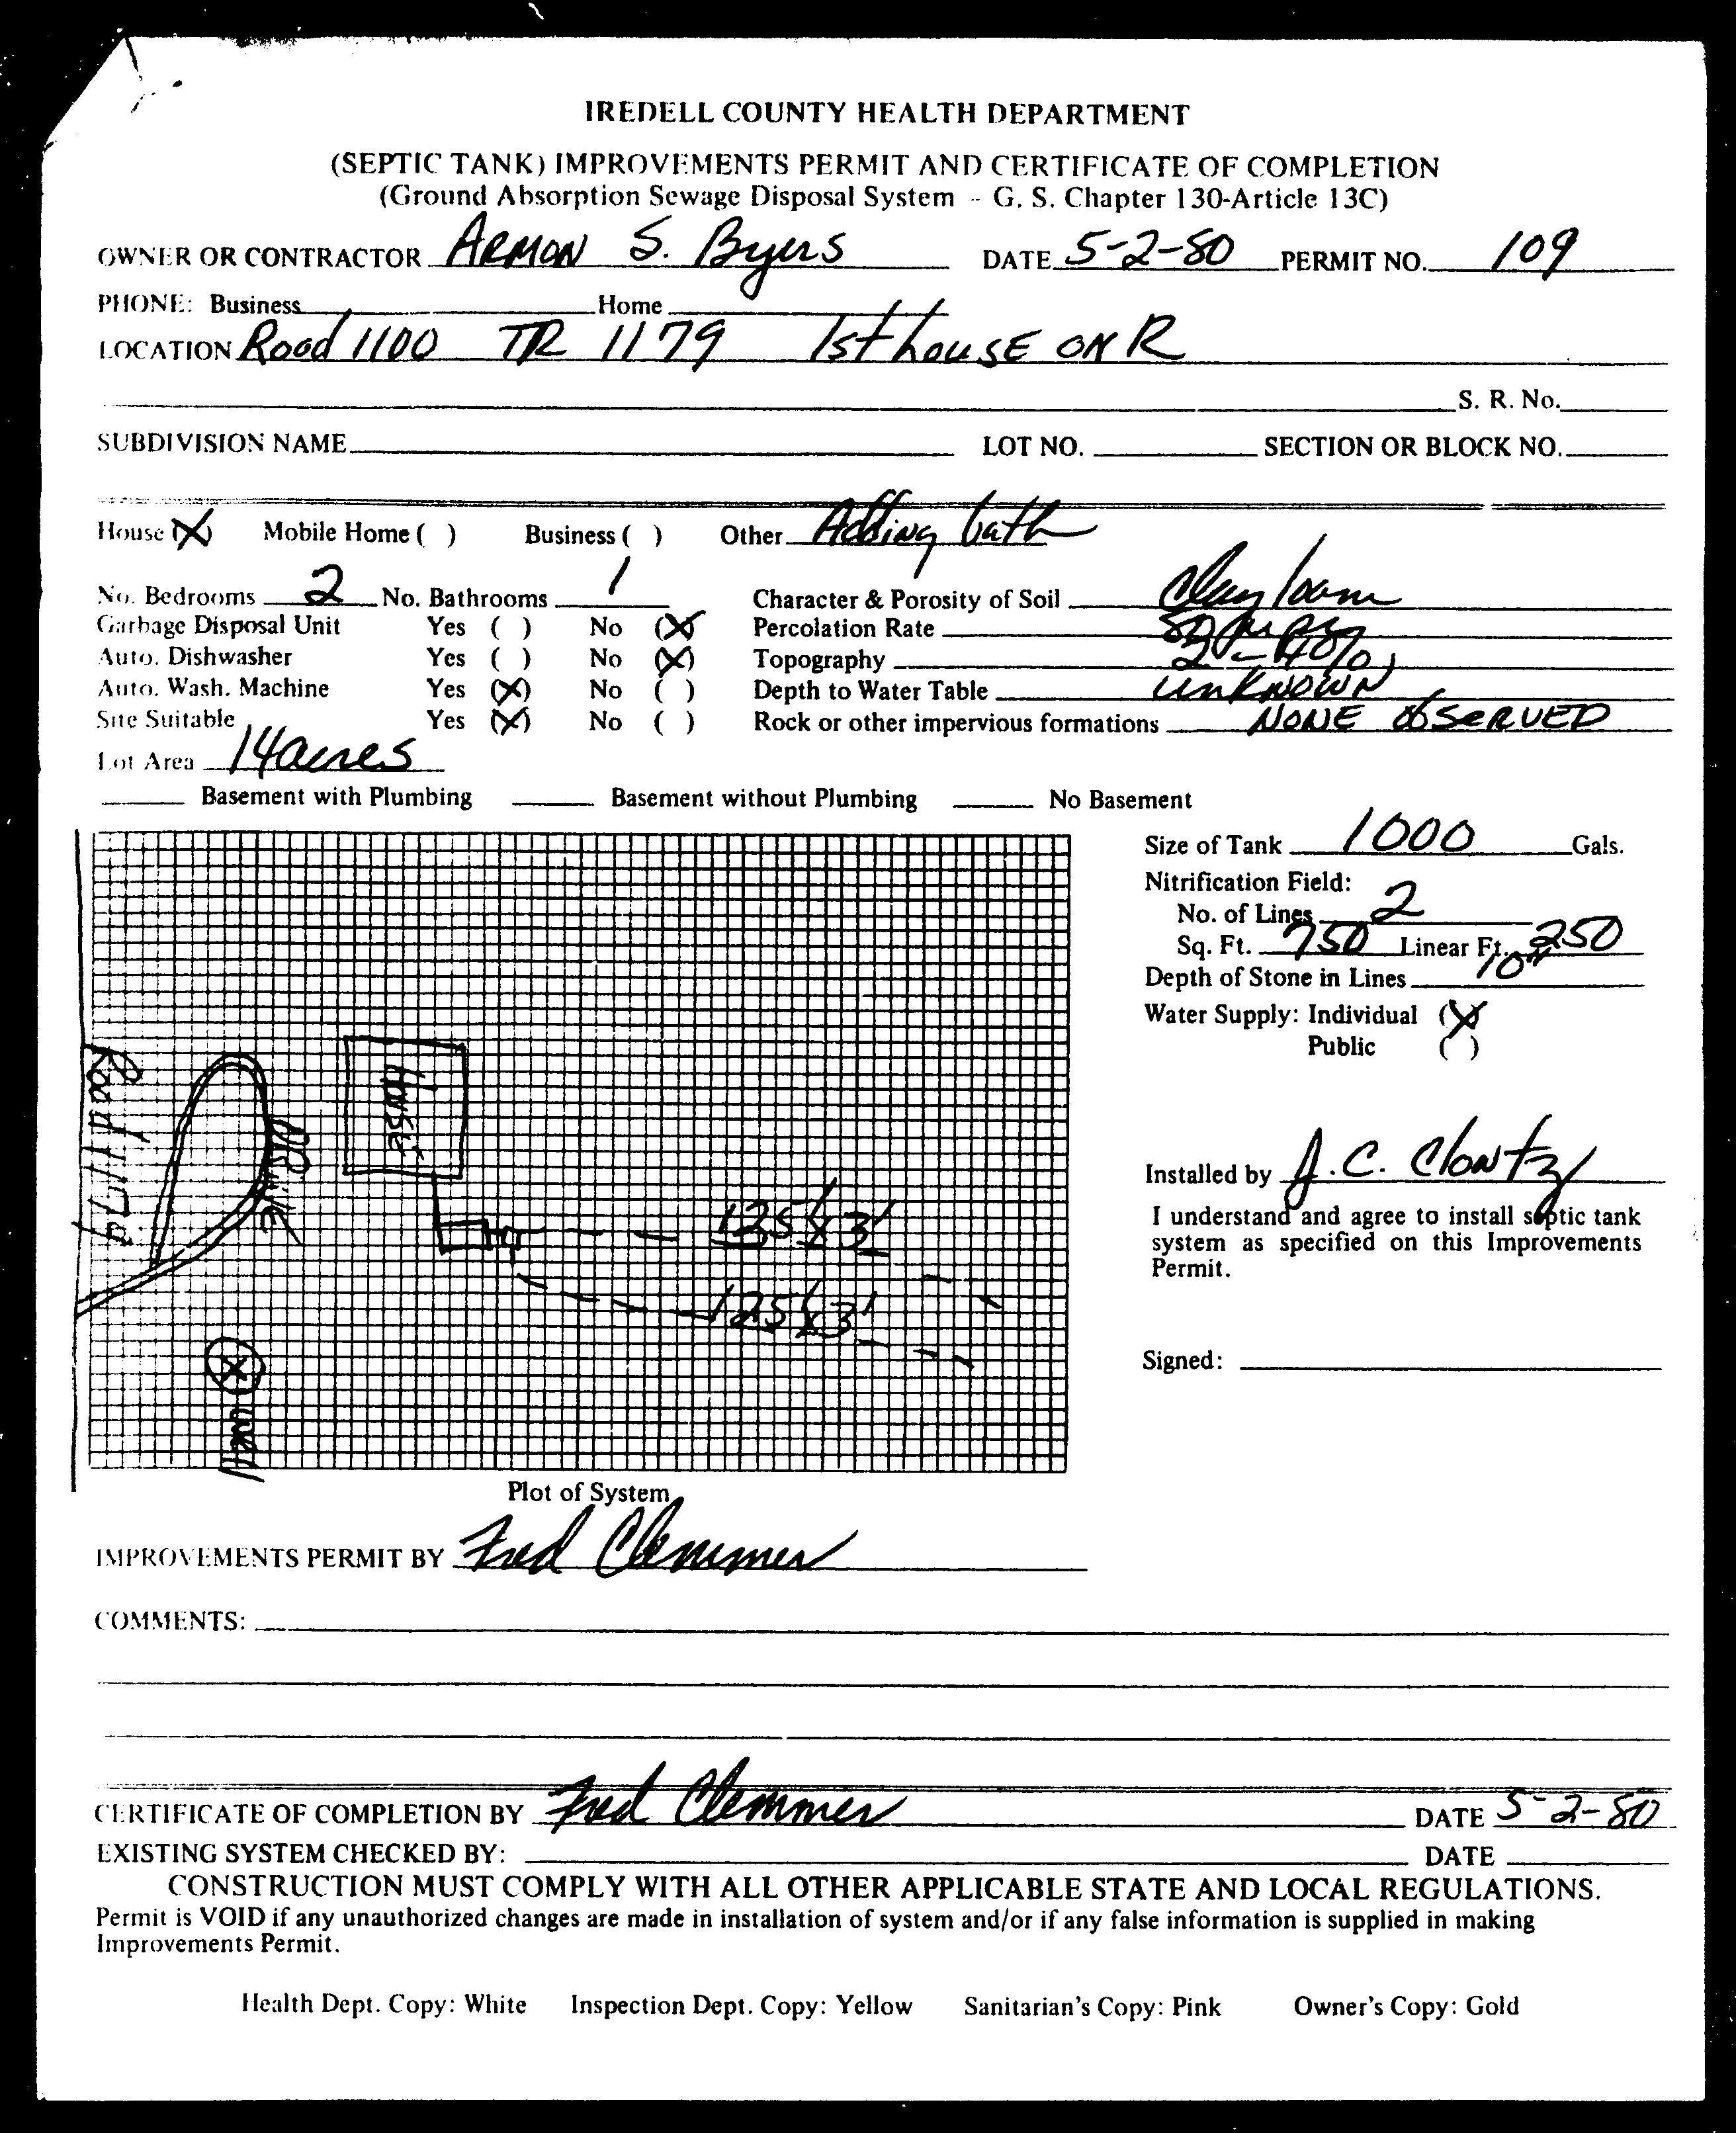 IREDELL COUNTY HEALTH DEPARTMENT
(SEPTIC TANK) IMPROVEMENTS PERMIT AND CERTIFICATE OF COMPLETION
(Ground Absorption Sewage Disposal System - G. S. Chapter 130-Article 13C)
OWNER OR CONTRACTOR ARMON S. Byers DATE 5-2-80 PERMIT NO. 109
PHONE: Business Home
LOCATION Road 1100 TR 1179 1st house ON R
S. R. No.
SUBDIVISION NAME LOT NO. SECTION OR BLOCK NO.
House (X) Mobile Home ( ) Business ( ) Other Adding bath
No. Bedrooms 2 No. Bathrooms 1 Character & Porosity of Soil Clay loam
Garbage Disposal Unit Yes ( ) No (X) Percolation Rate
Auto. Dishwasher Yes ( ) No (X) Topography 2-40%
Auto. Wash. Machine Yes (X) No ( ) Depth to Water Table unKNOWN
Site Suitable Yes (X) No ( ) Rock or other impervious formations NONE ObSeRVED
Lot Area 14 acres
Basement with Plumbing Basement without Plumbing No Basement
Size of Tank 1000 Gals.
Nitrification Field:
No. of Lines 2
Sq. Ft. 750 Linear Ft. 250
Depth of Stone in Lines 10"
Water Supply: Individual (X)
Public ( )
Road 1179
DRIVE
House
125' x 3'
125' x 3'
X well
Installed by J. C. Clontz
I understand and agree to install septic tank
system as specified on this Improvements
Permit.
Signed:
Plot of System
IMPROVEMENTS PERMIT BY Fred Clemmer
COMMENTS:
CERTIFICATE OF COMPLETION BY Fred Clemmer DATE 5-2-80
EXISTING SYSTEM CHECKED BY: DATE
CONSTRUCTION MUST COMPLY WITH ALL OTHER APPLICABLE STATE AND LOCAL REGULATIONS.
Permit is VOID if any unauthorized changes are made in installation of system and/or if any false information is supplied in making
Improvements Permit.
Health Dept. Copy: White Inspection Dept. Copy: Yellow Sanitarian's Copy: Pink Owner's Copy: Gold